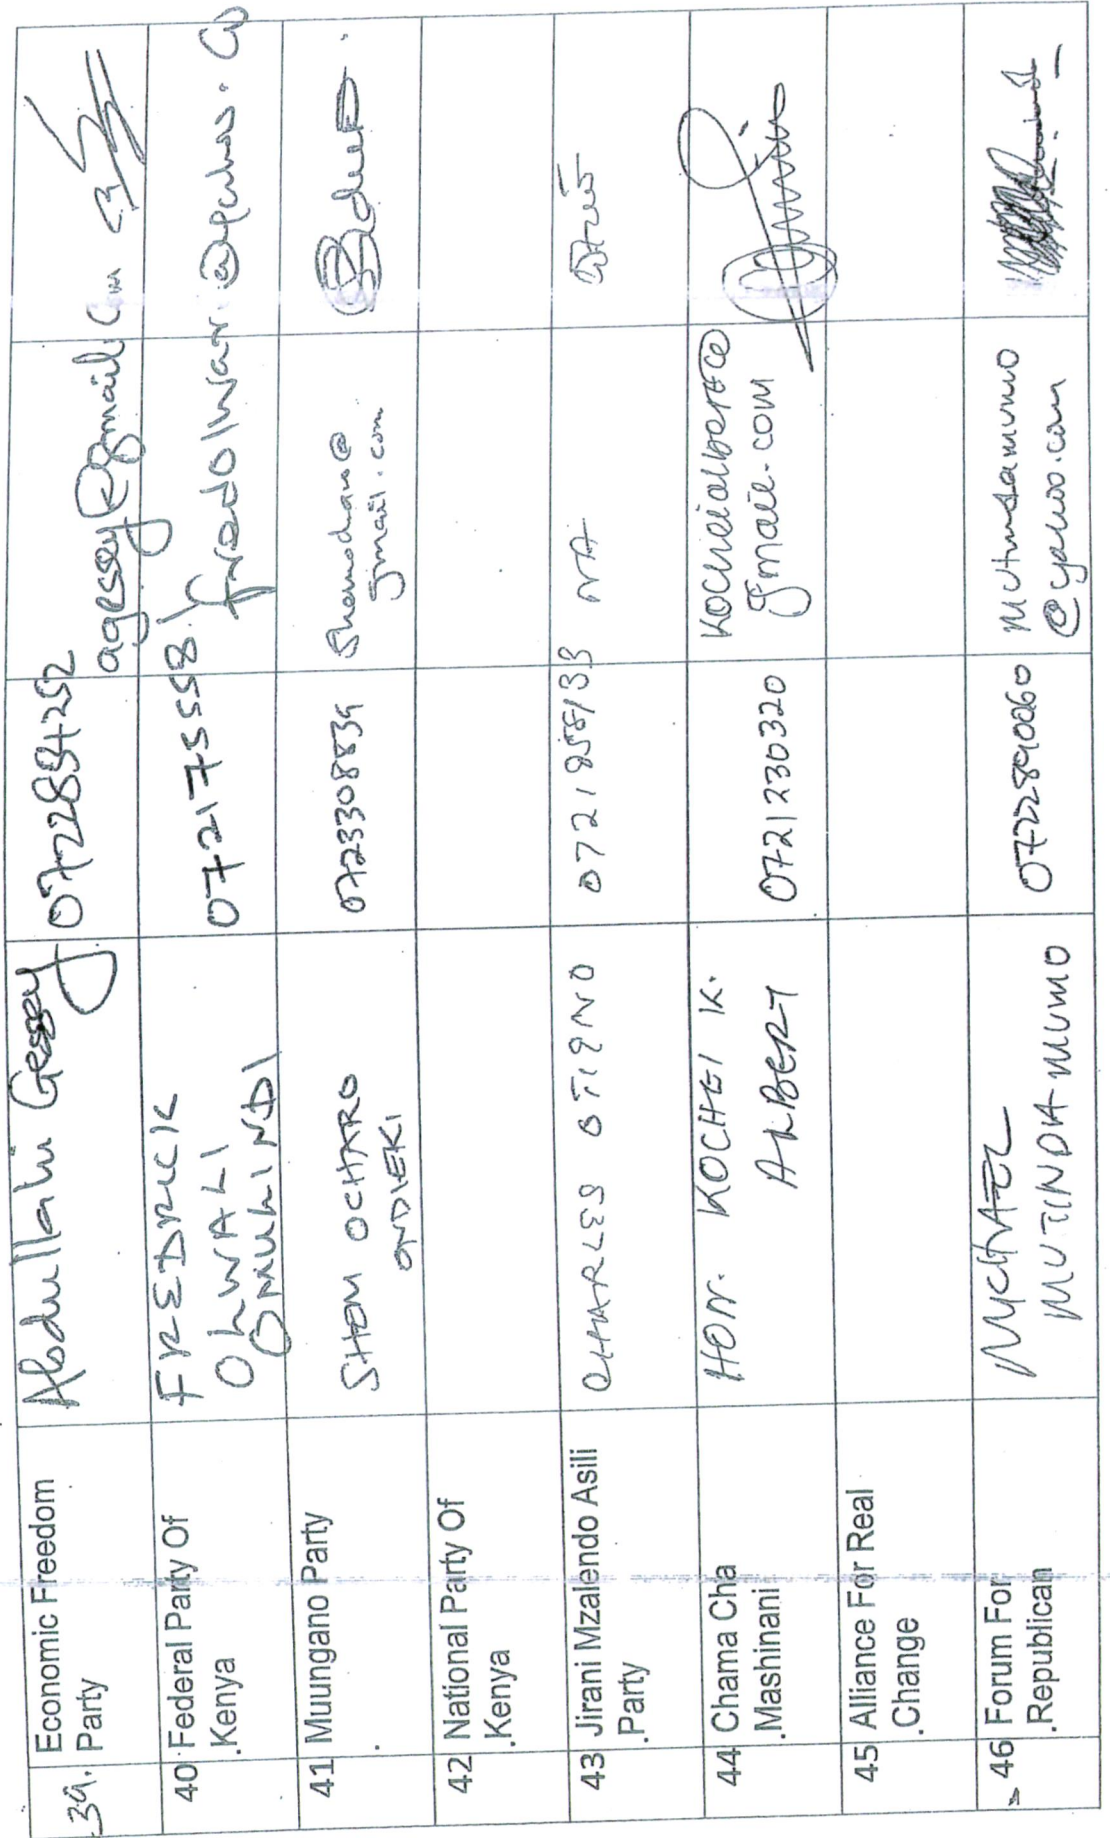 39. Economic Freedom
Party
Abdullahi Gessey
0722854252
agessey@gmail.com
40 Federal Party Of
.Kenya
FREDRICK
OLWALI
OMULINDI
072175558
fredolwari@yahoo.co
41 Muungano Party
.
SHEM OCHARO
ONDIEKI
0723308839
Shemochan@
gmail.com
42 National Party Of
.Kenya
43 Jirani Mzalendo Asili
.Party
CHARLES OTIENO
0721258133
NA
44 Chama Cha
.Mashinani
HON. KOCHEI K.
ALBERT
0721230320
kocheialbert@
gmail.com
45 Alliance For Real
.Change
46 Forum For
.Republican
MICHAEL
MUTINDA MUMO
0722890060
mutindamumo
@yahoo.com